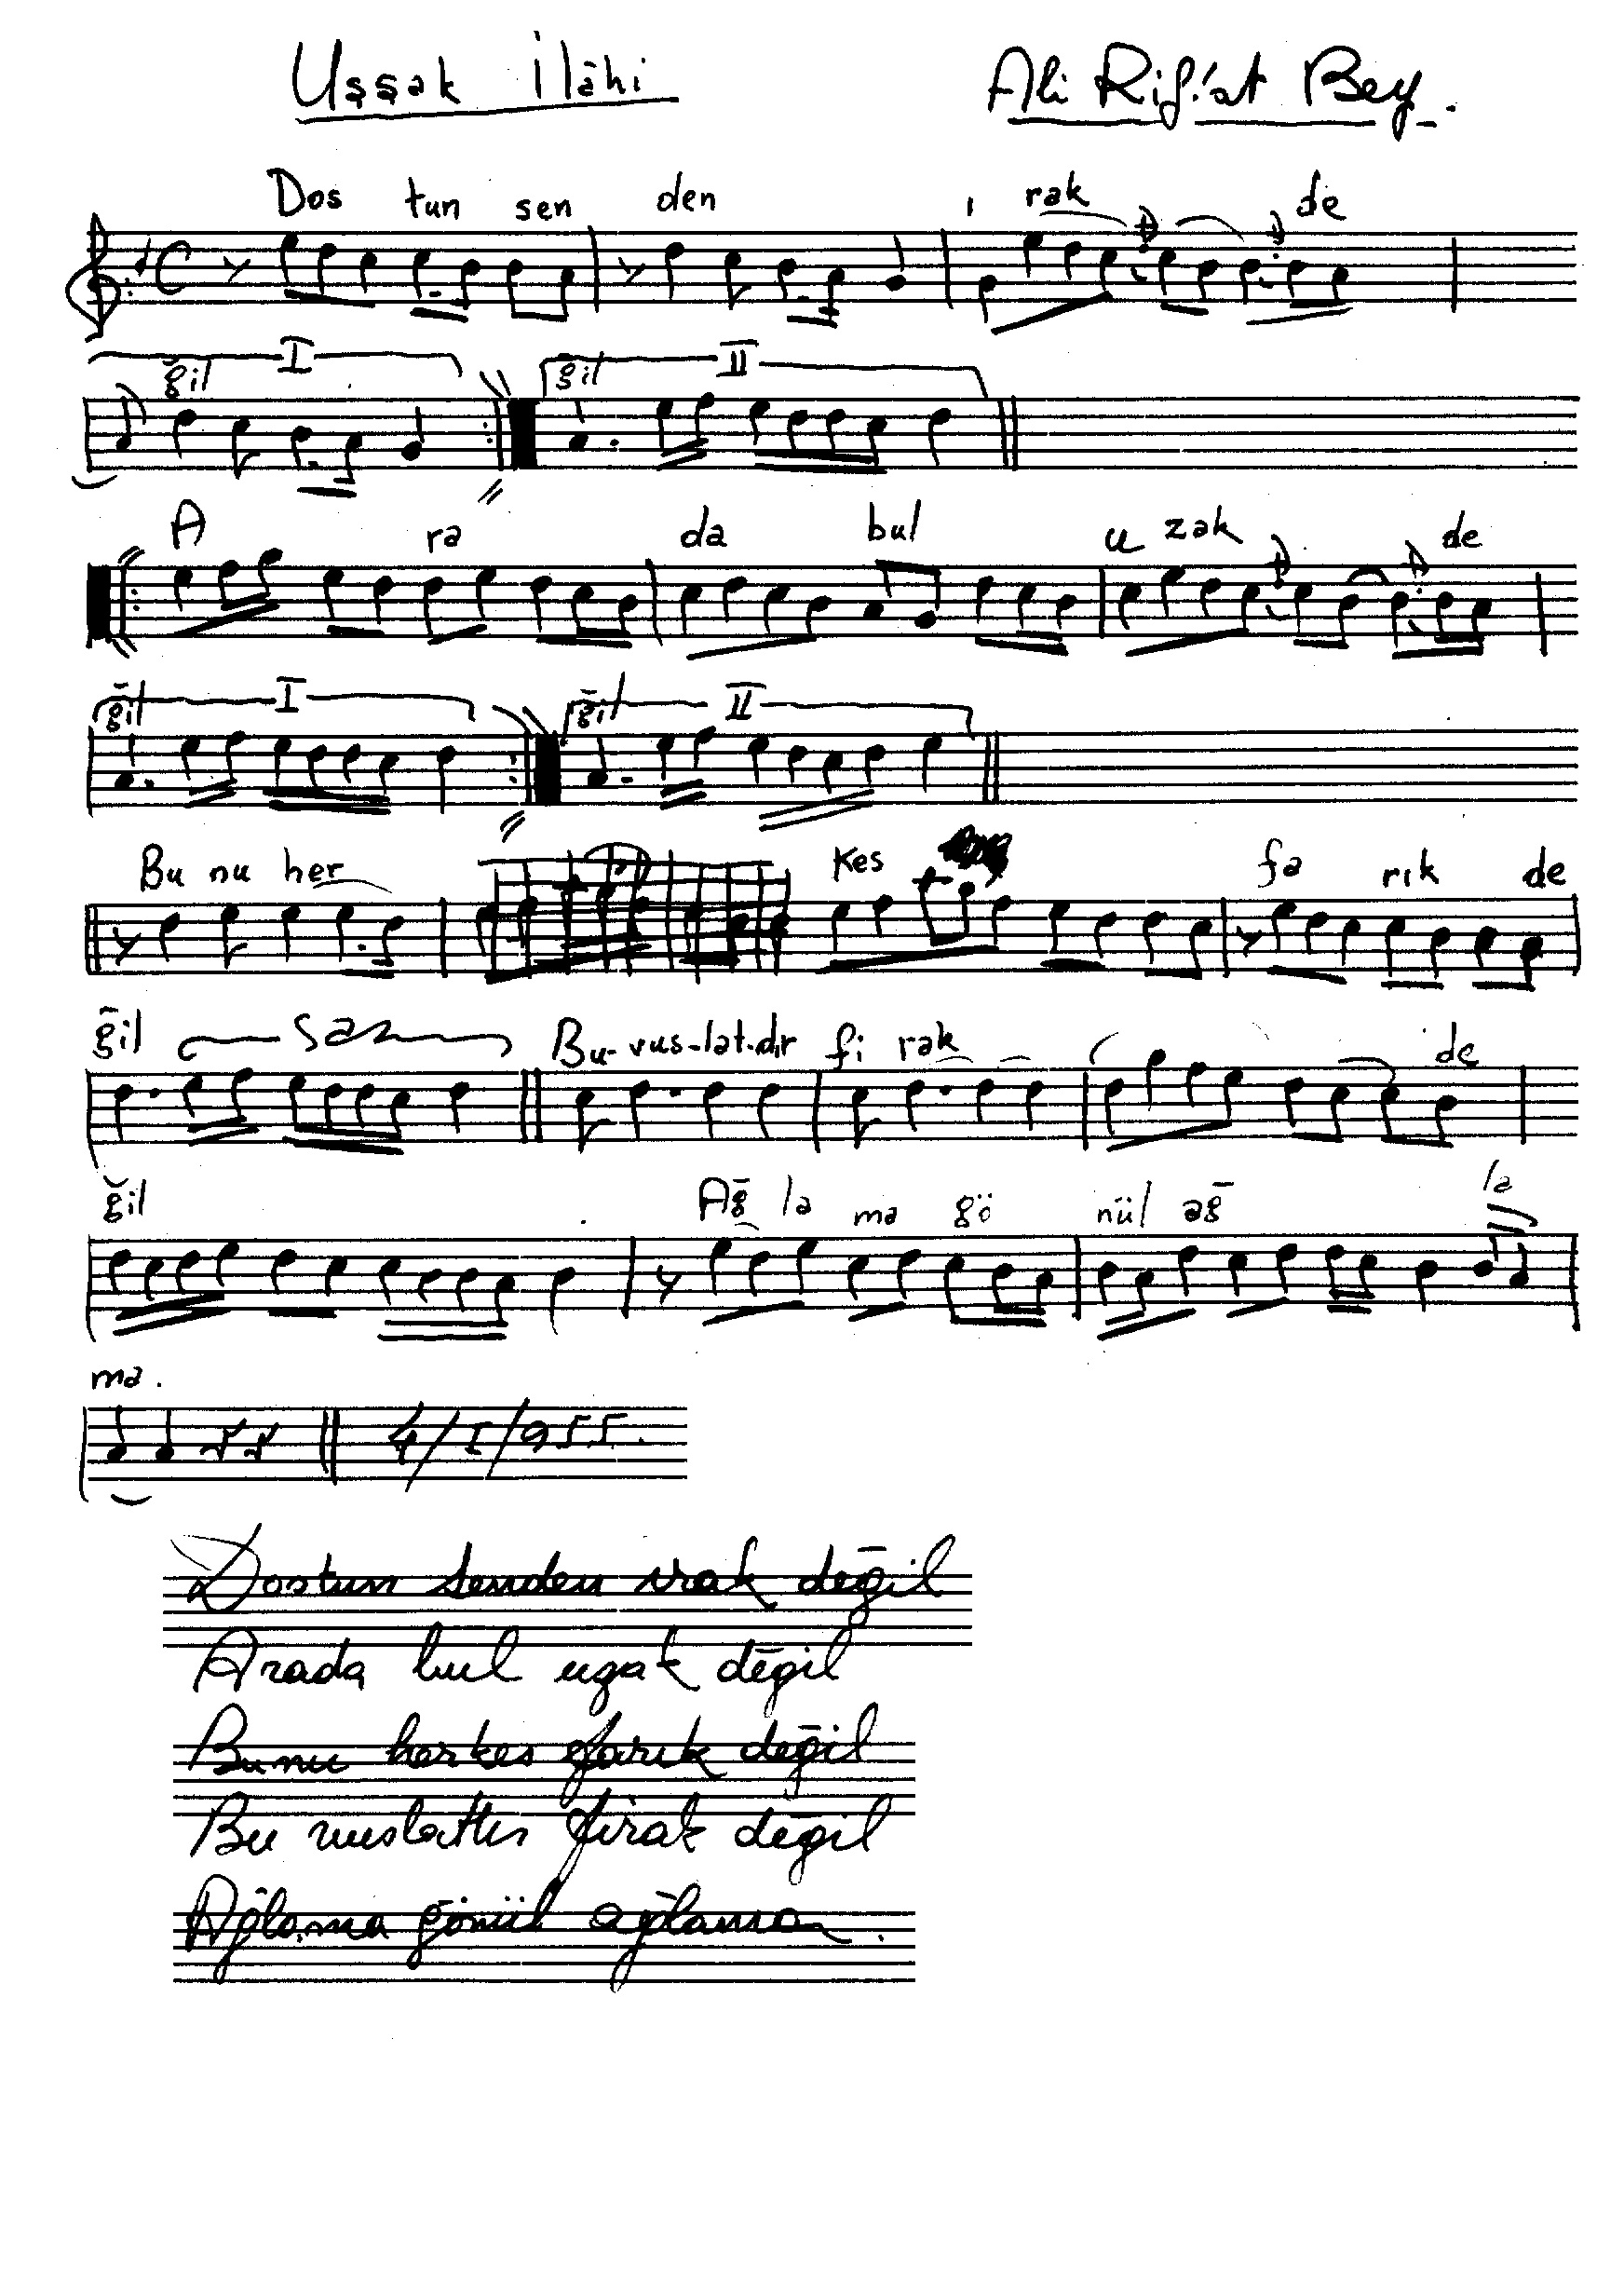 Uşşak İlâhi Ali Rif'at Bey.
Dos tun sen den ı rak de
ğil I ğil II
A ra da bul u zak de
ğil I ğil II
Bu nu her kes fa rık de
ğil Saz Bu-vus-lat-dır fi rak de
ğil Ağ la ma gö nül ağ la
ma.
4/I/955.
Dostun senden ırak değil
Arada bul uzak değil
Bunu herkes farık değil
Bu vuslattır firak değil
Ağlama gönül ağlama.